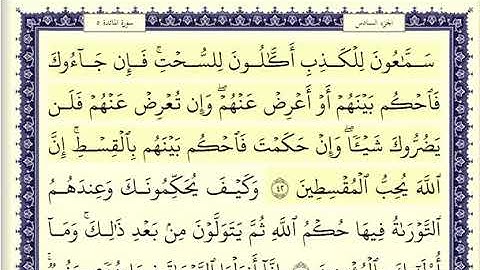 الجزء السادس
سورة المائدة ٥
سَمَّٰعُونَ لِلْكَذِبِ أَكَّٰلُونَ لِلسُّحْتِ ۚ فَإِن جَآءُوكَ
فَٱحْكُم بَيْنَهُمْ أَوْ أَعْرِضْ عَنْهُمْ ۖ وَإِن تُعْرِضْ عَنْهُمْ فَلَن
يَضُرُّوكَ شَيْـًٔا ۖ وَإِنْ حَكَمْتَ فَٱحْكُم بَيْنَهُم بِٱلْقِسْطِ ۚ إِنَّ
ٱللَّهَ يُحِبُّ ٱلْمُقْسِطِينَ ٤٢ وَكَيْفَ يُحَكِّمُونَكَ وَعِندَهُمُ
ٱلتَّوْرَىٰةُ فِيهَا حُكْمُ ٱللَّهِ ثُمَّ يَتَوَلَّوْنَ مِنۢ بَعْدِ ذَٰلِكَ ۚ وَمَآ